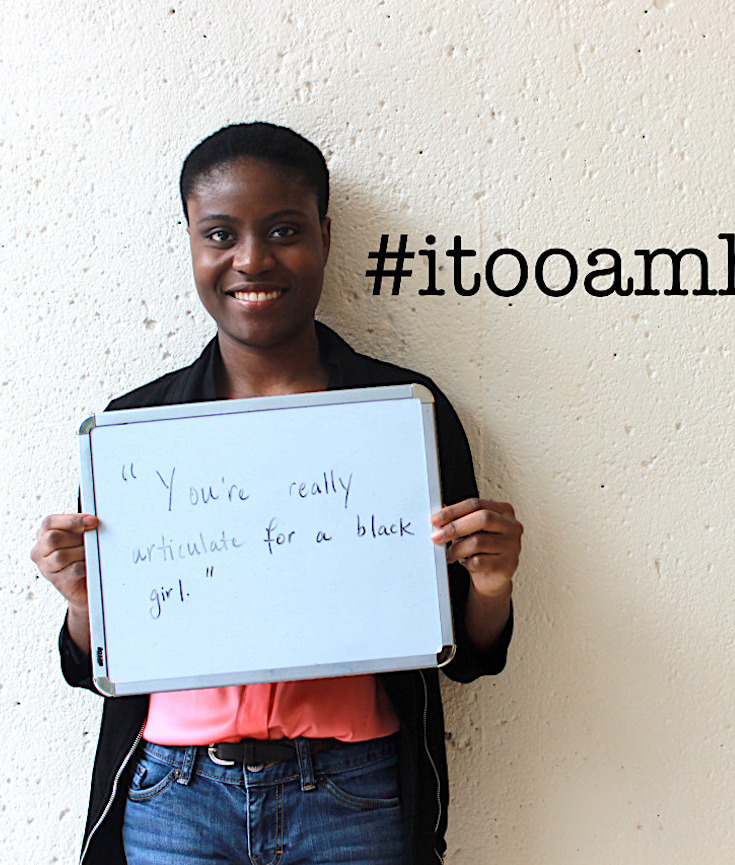 #itooamh
"You're really
articulate for a black
girl."